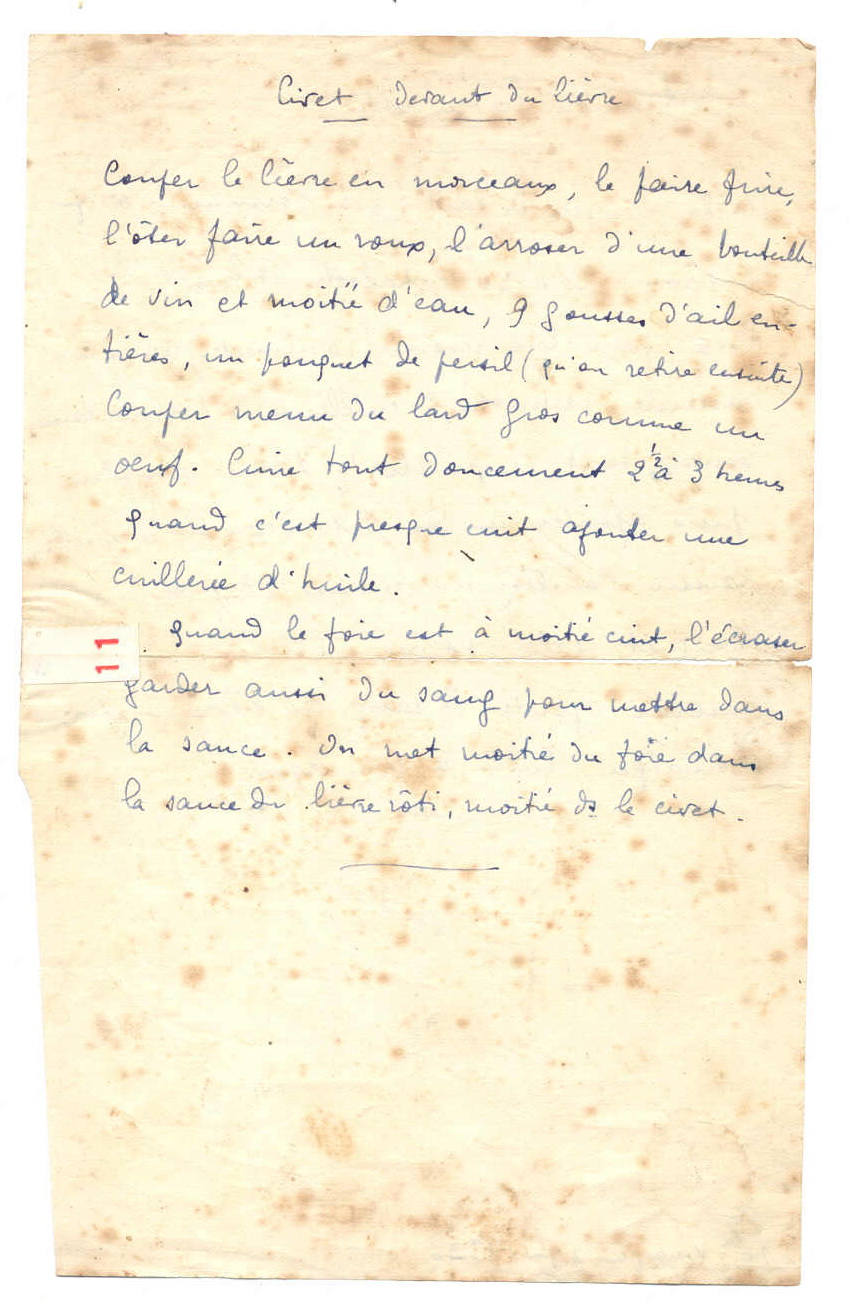 Civet devant du lièvre
Couper le lièvre en morceaux, le faire frire,
l'ôter faire un roux, l'arroser d'une bouteille
de vin et moitié d'eau, 9 gousses d'ail en-
tières, un bouquet de persil (qu'on retire ensuite)
Couper menu du lard gros comme un
oeuf. Cuire tout doucement 2 1/2 à 3 heures
quand c'est presque cuit ajouter une
cuillerée d'huile.
Quand le foie est à moitié cuit, l'écraser
11
garder aussi du sang pour mettre dans
la sauce. On met moitié du foie dans
la sauce du lièvre rôti, moitié ds le civet.